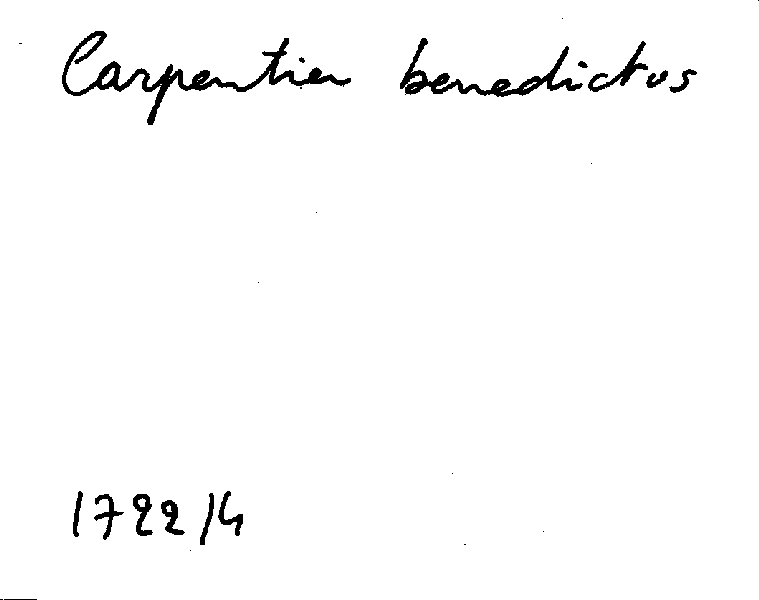 Carpentier benedictus
1722/4